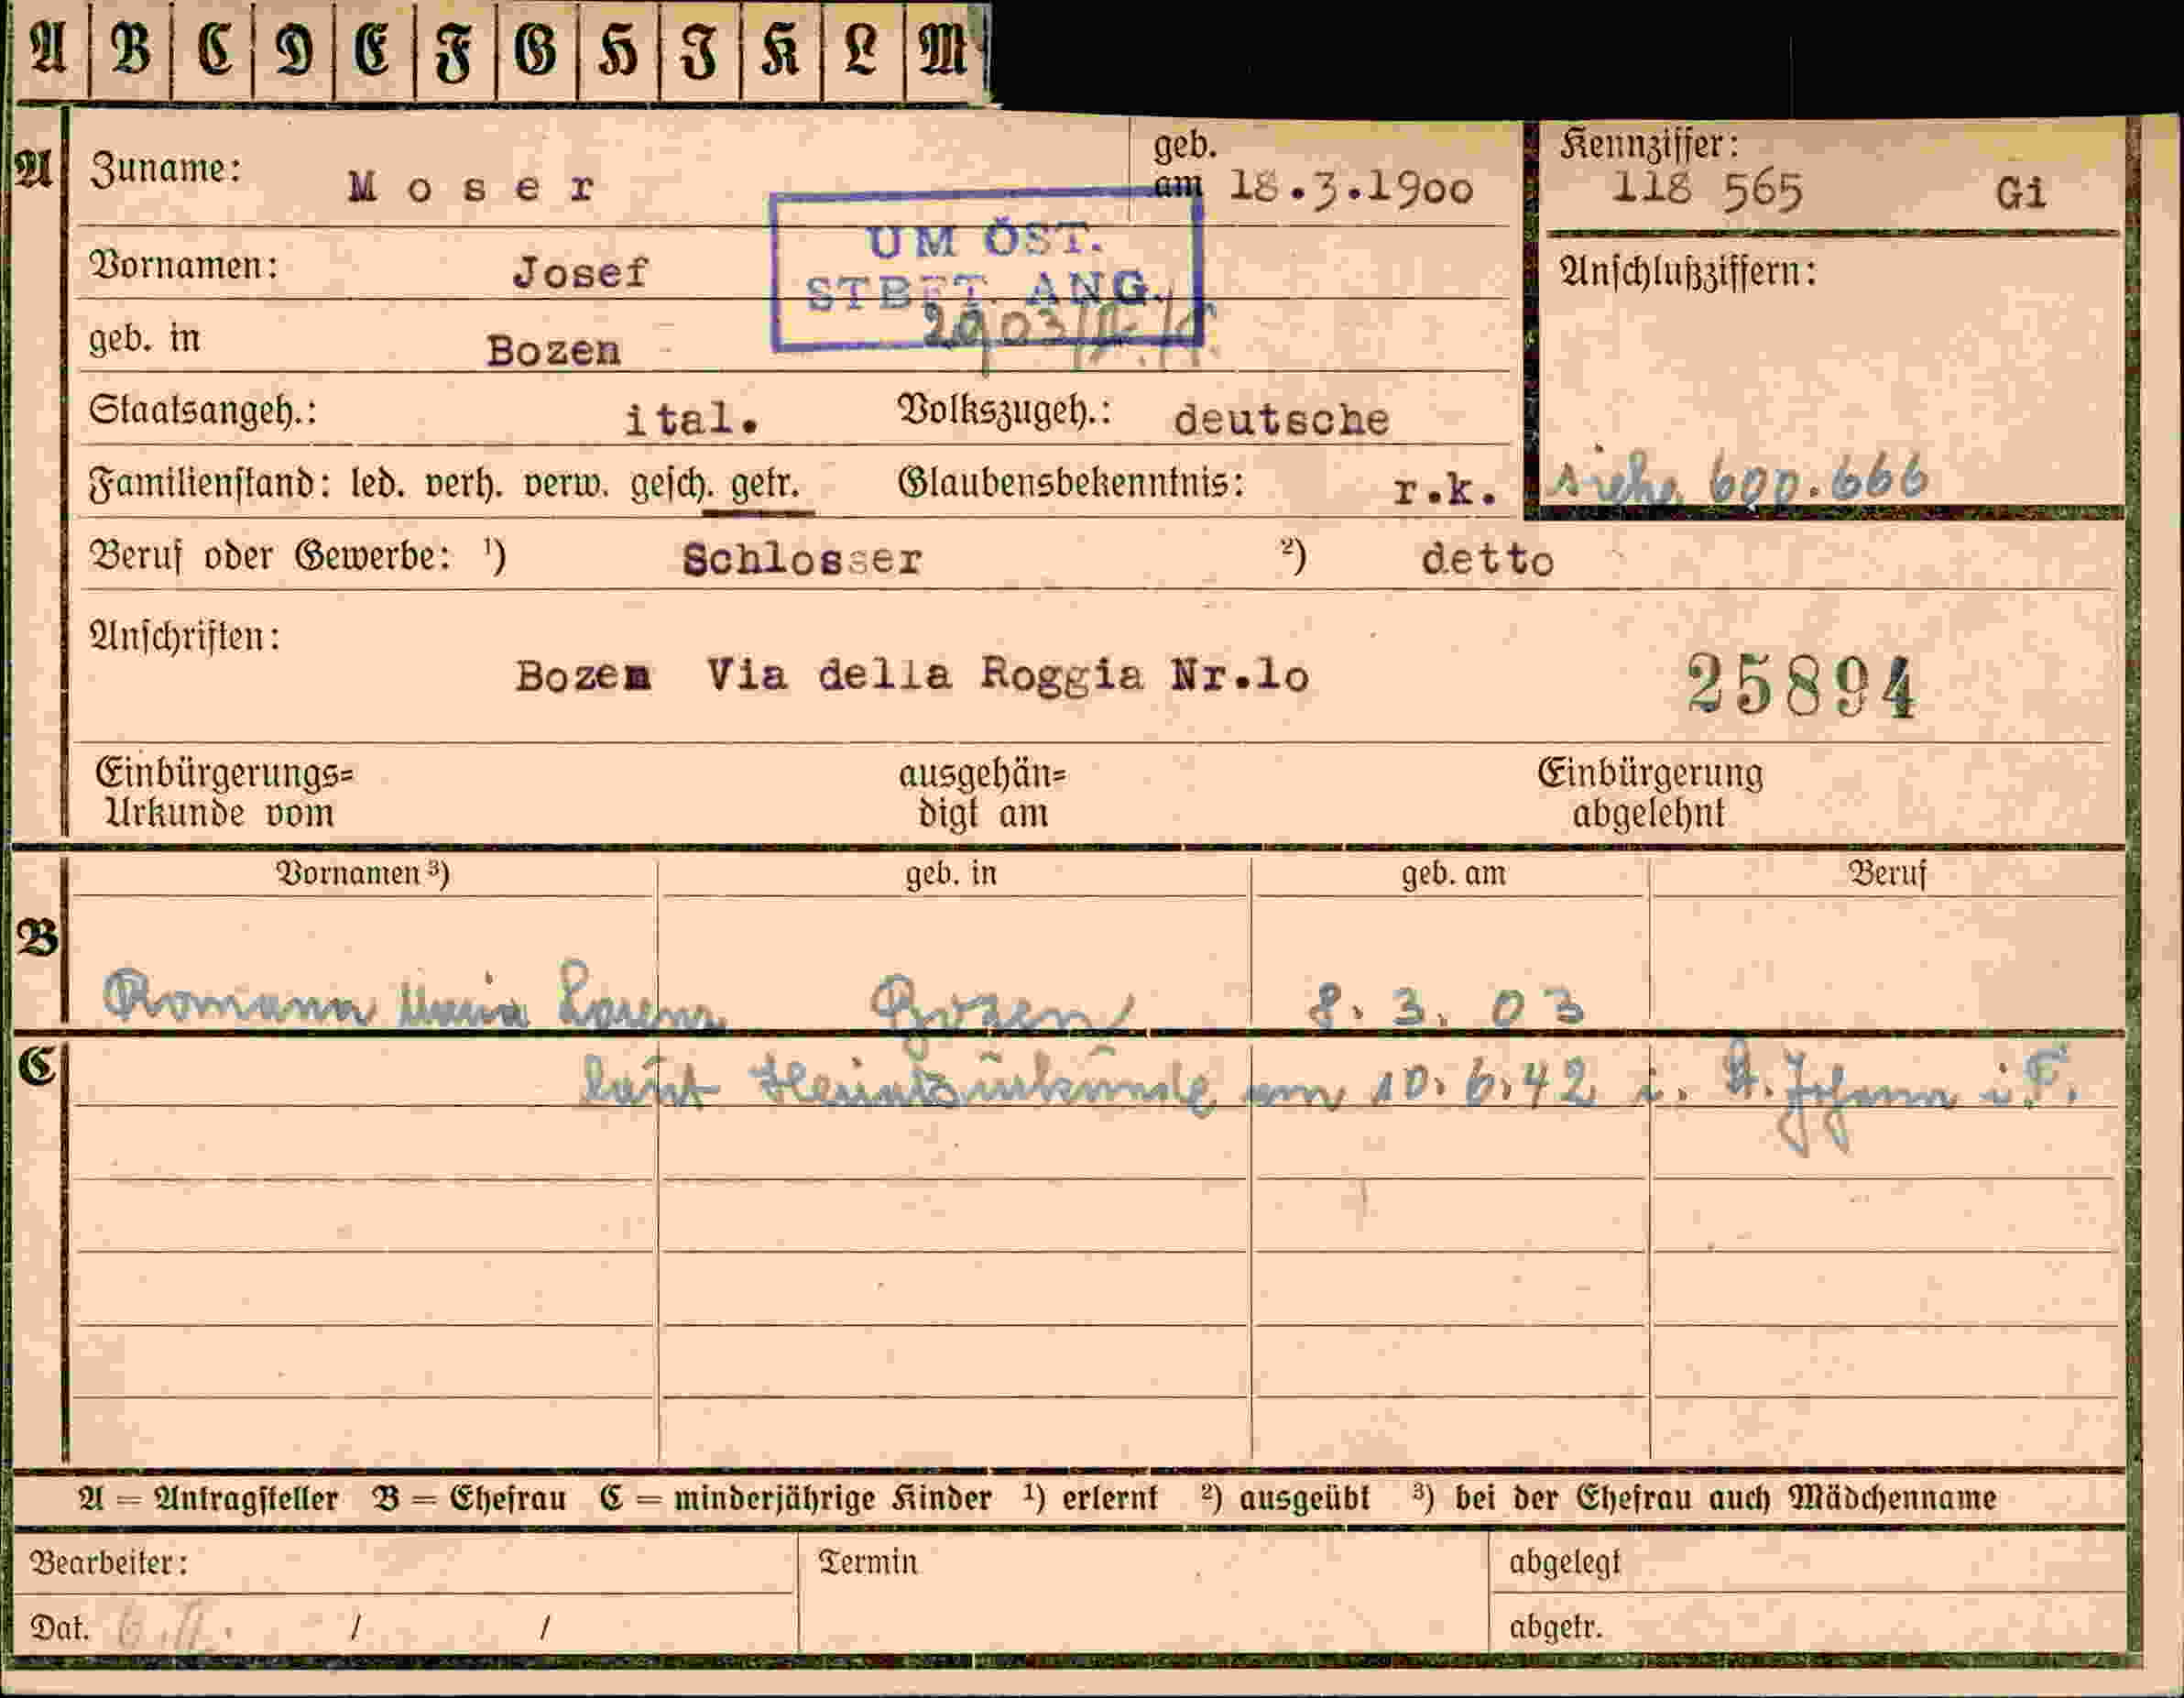 A B C D E F G H I K L M
A Zuname: Moser geb. am 18.3.1900 Kennziffer: 118 565 Gi
UM ÖST. STBFT. ANG.
Vornamen: Josef Anschlußziffern:
geb. in Bozen
Staatsangeh.: ital. Volkszugeh.: deutsche
Familienstand: led. verh. verw. gesch. getr. Glaubensbekenntnis: r.k. siehe 600.666
Beruf oder Gewerbe: ¹) Schlosser ²) detto
Anschriften:
Bozen Via della Roggia Nr.lo 25894
Einbürgerungs= ausgehän= Einbürgerung
Urkunde vom digt am abgelehnt
Vornamen ³) geb. in geb. am Beruf
B
Romana Maria Lorenz Bozen 8. 3. 03
C laut Heiratsurkunde am 10. 6. 42 i. St. Johann i. T.
A = Antragsteller B = Ehefrau C = minderjährige Kinder ¹) erlernt ²) ausgeübt ³) bei der Ehefrau auch Mädchenname
Bearbeiter: Termin abgelegt
Dat. / / abgetr.